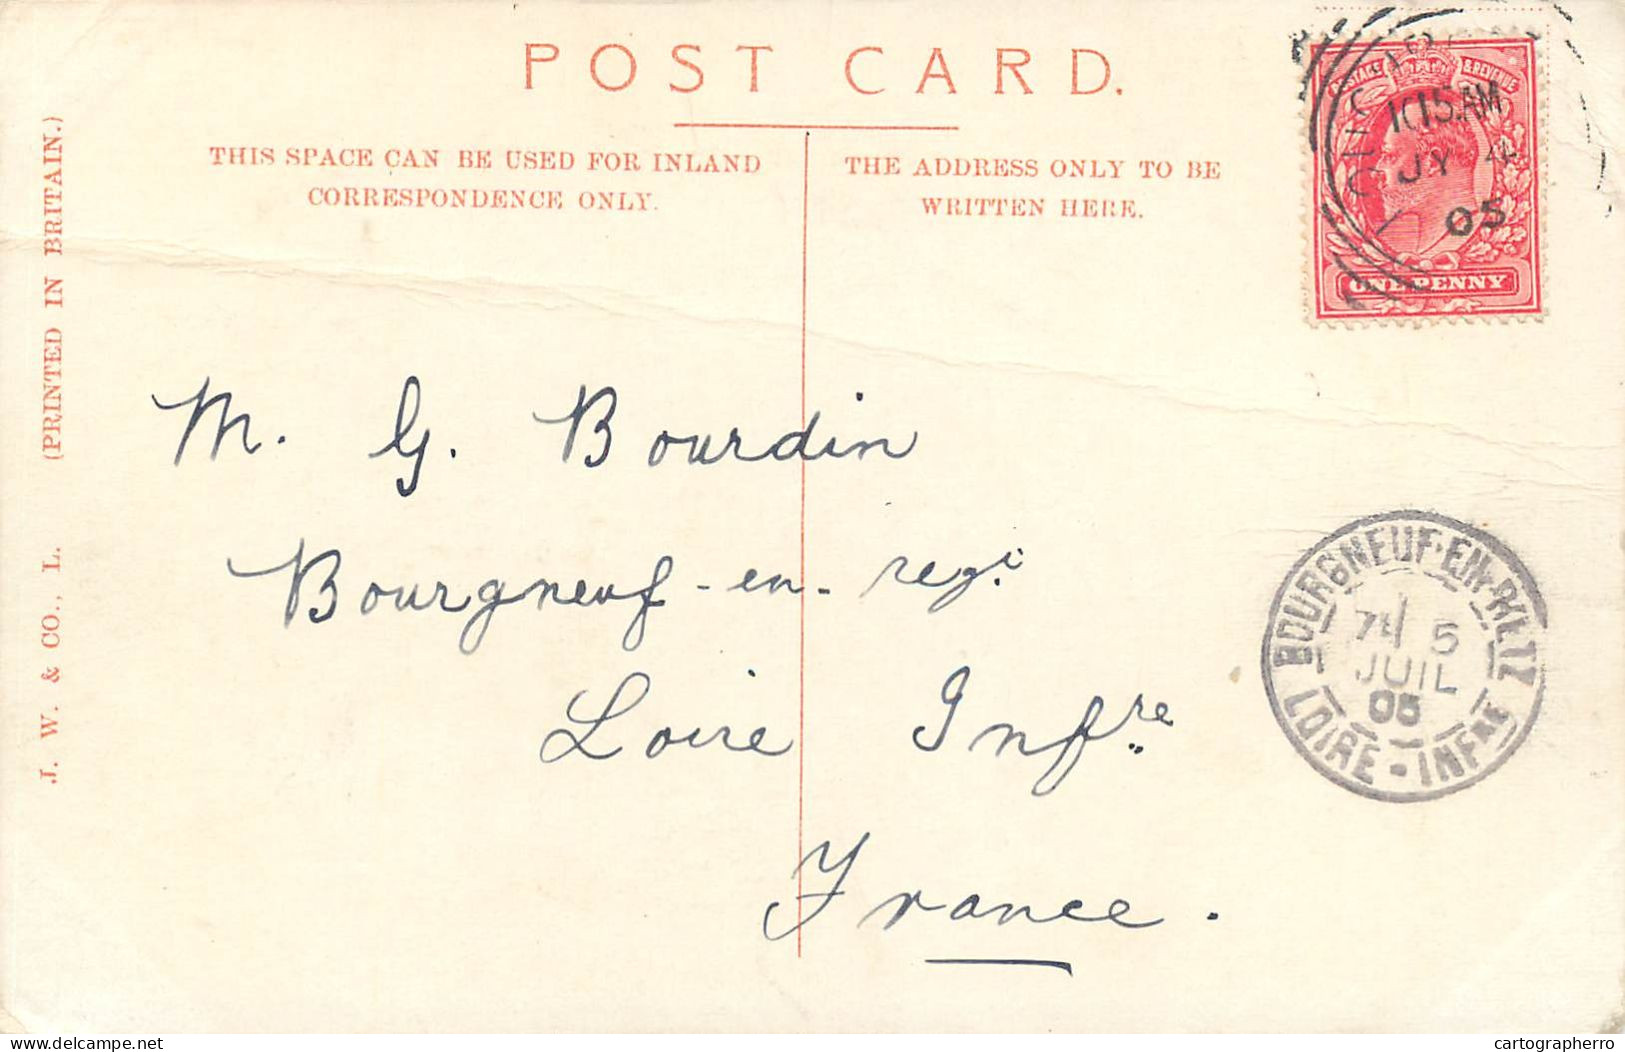 POST CARD.
THIS SPACE CAN BE USED FOR INLAND
CORRESPONDENCE ONLY.
THE ADDRESS ONLY TO BE
WRITTEN HERE.
J. W. & CO., L. (PRINTED IN BRITAIN.)
POSTAGE & REVENUE
ONE PENNY
10.15.AM
JY 4
05
M. G. Bourdin
Bourgneuf-en-rezi
Loire Infre
France.
BOURGNEUF-EN-RETZ
5
JUIL
05
LOIRE-INFRE
delcampe.net
cartographerro